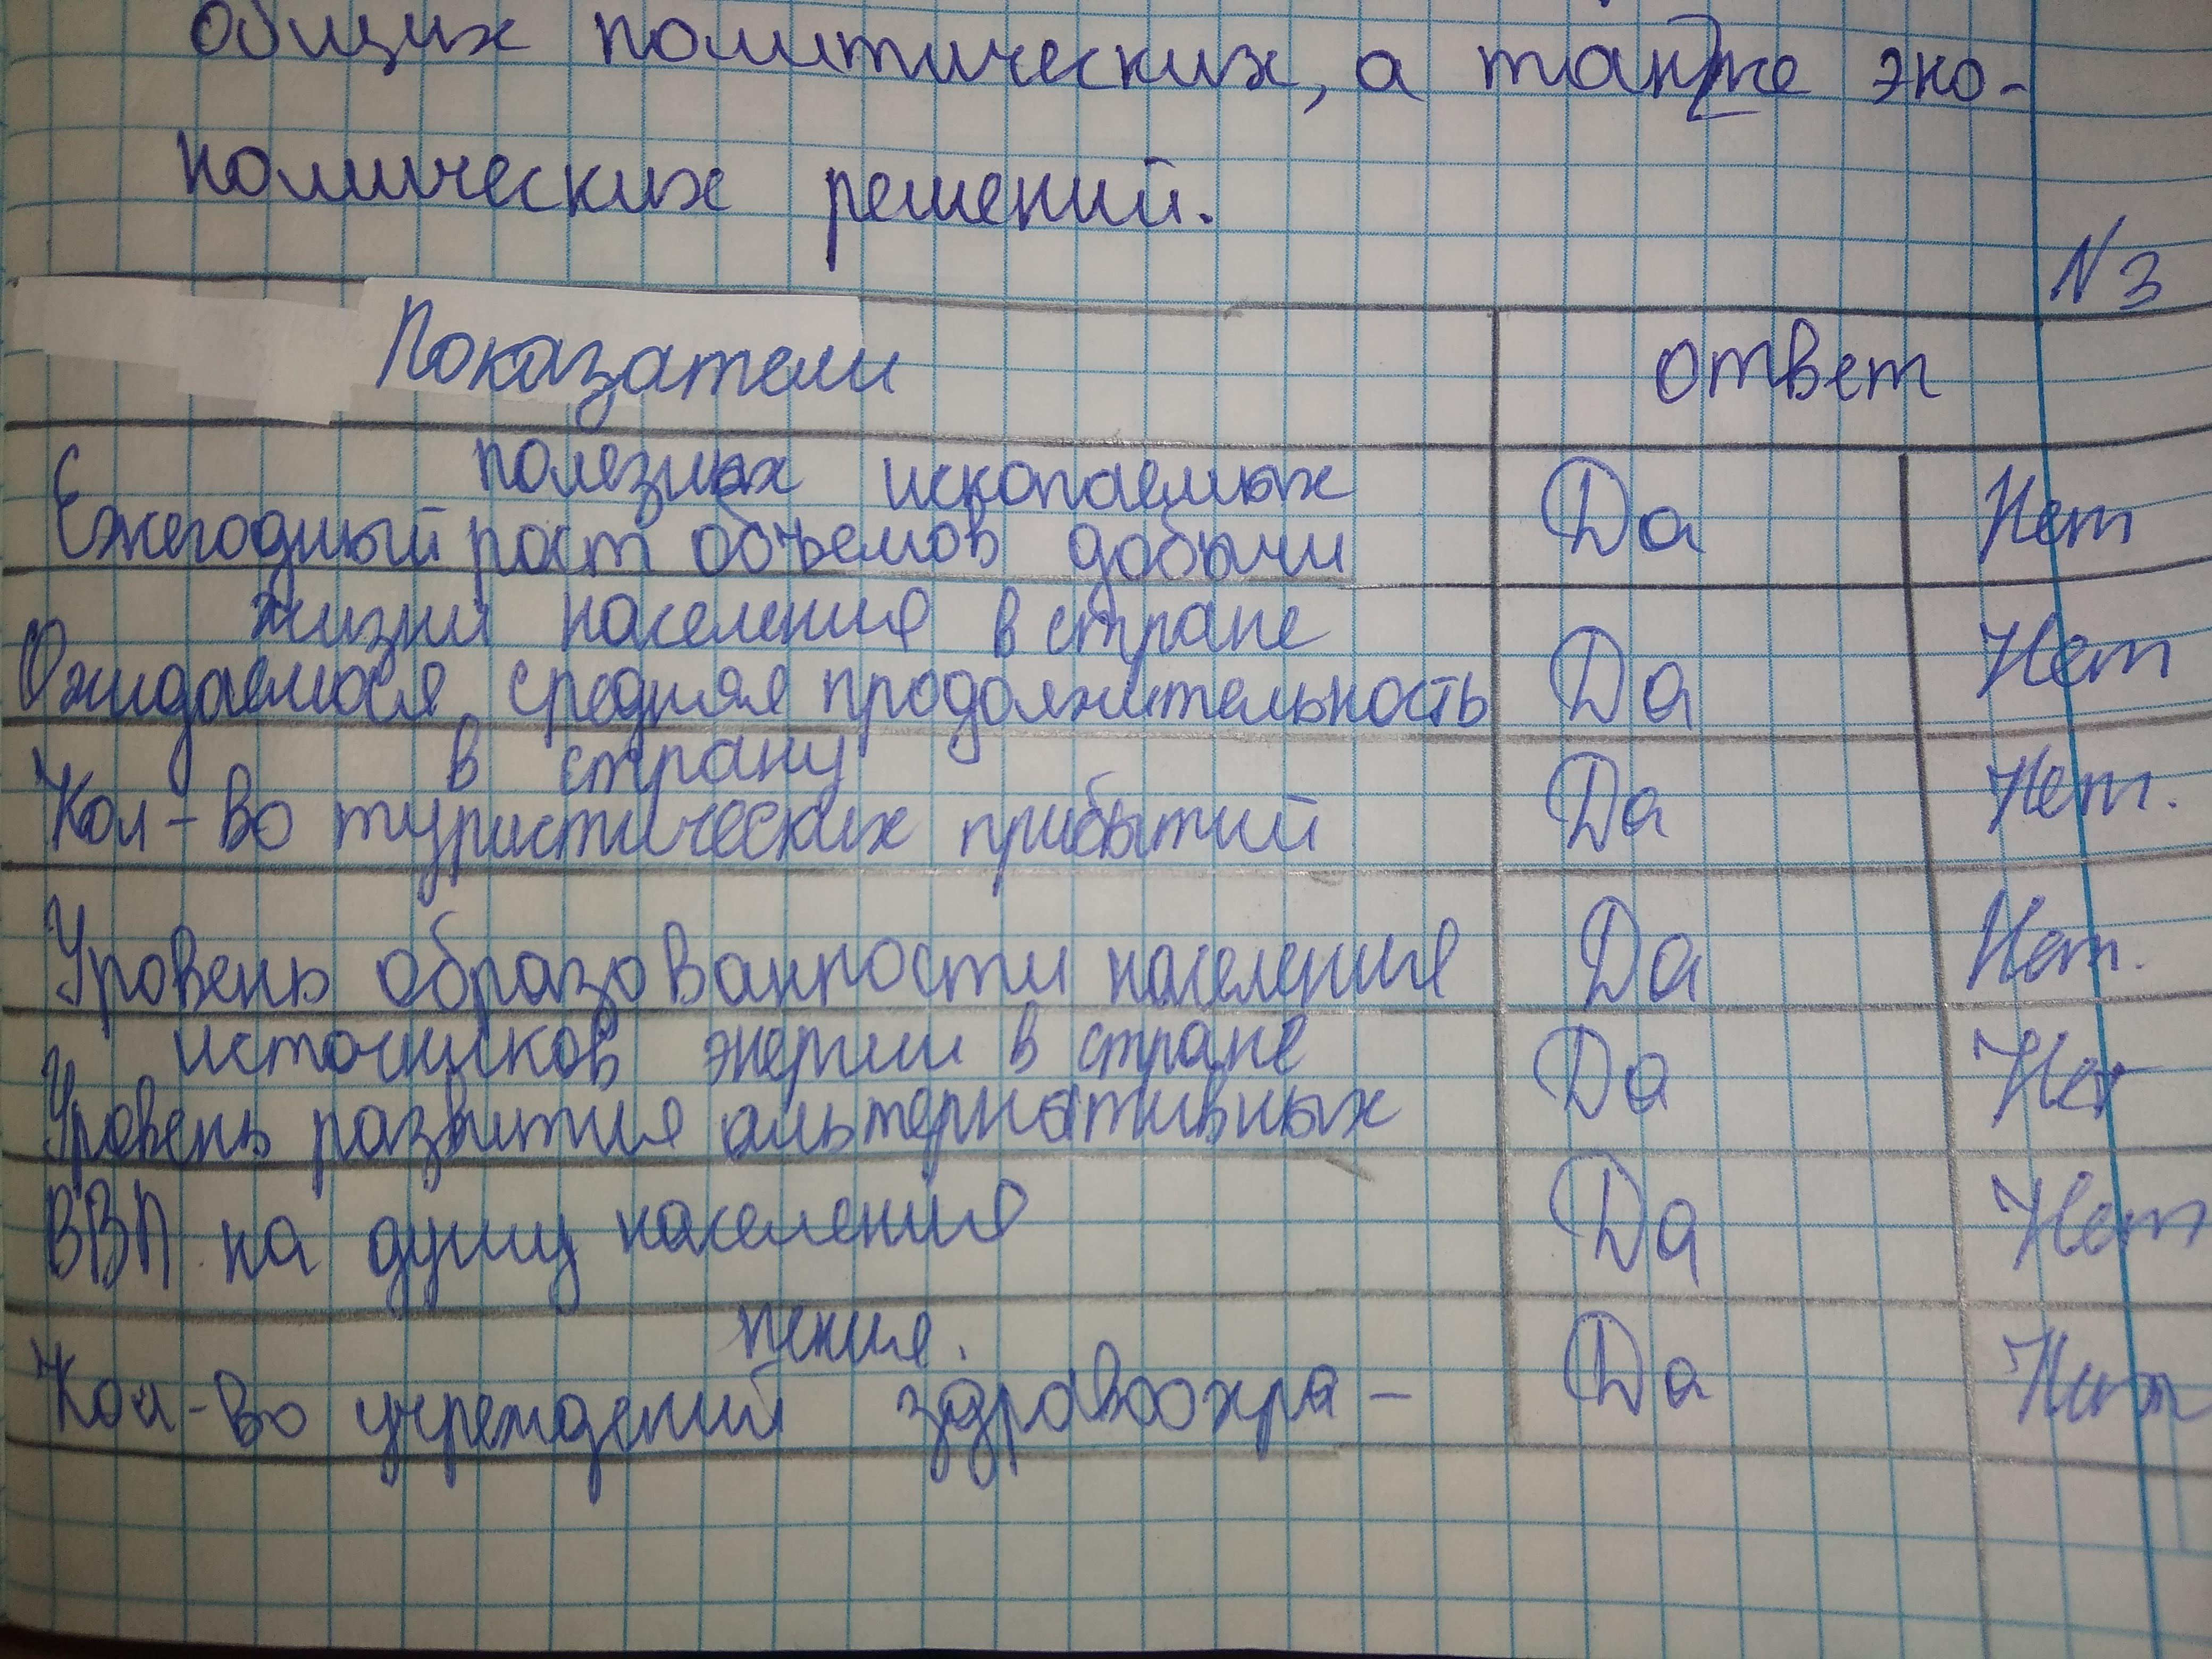 общих политических, а также эко-
номических решений.
N 3
Показатели ответ
полезных ископаемых
Ежегодный рост объемов добычи Да Нет
жизни населения в стране
Ожидаемося средняя продолжительность Да Нет
в страну
Кол-во туристических прибытий Да Нет.
Уровень образованности населения Да Нет.
источников энергии в стране
Уровень развития альтернативных Да Нет
ВВП на душу населения Да Нет
нения.
Кол-во учреждений здравоохра- Да Нет